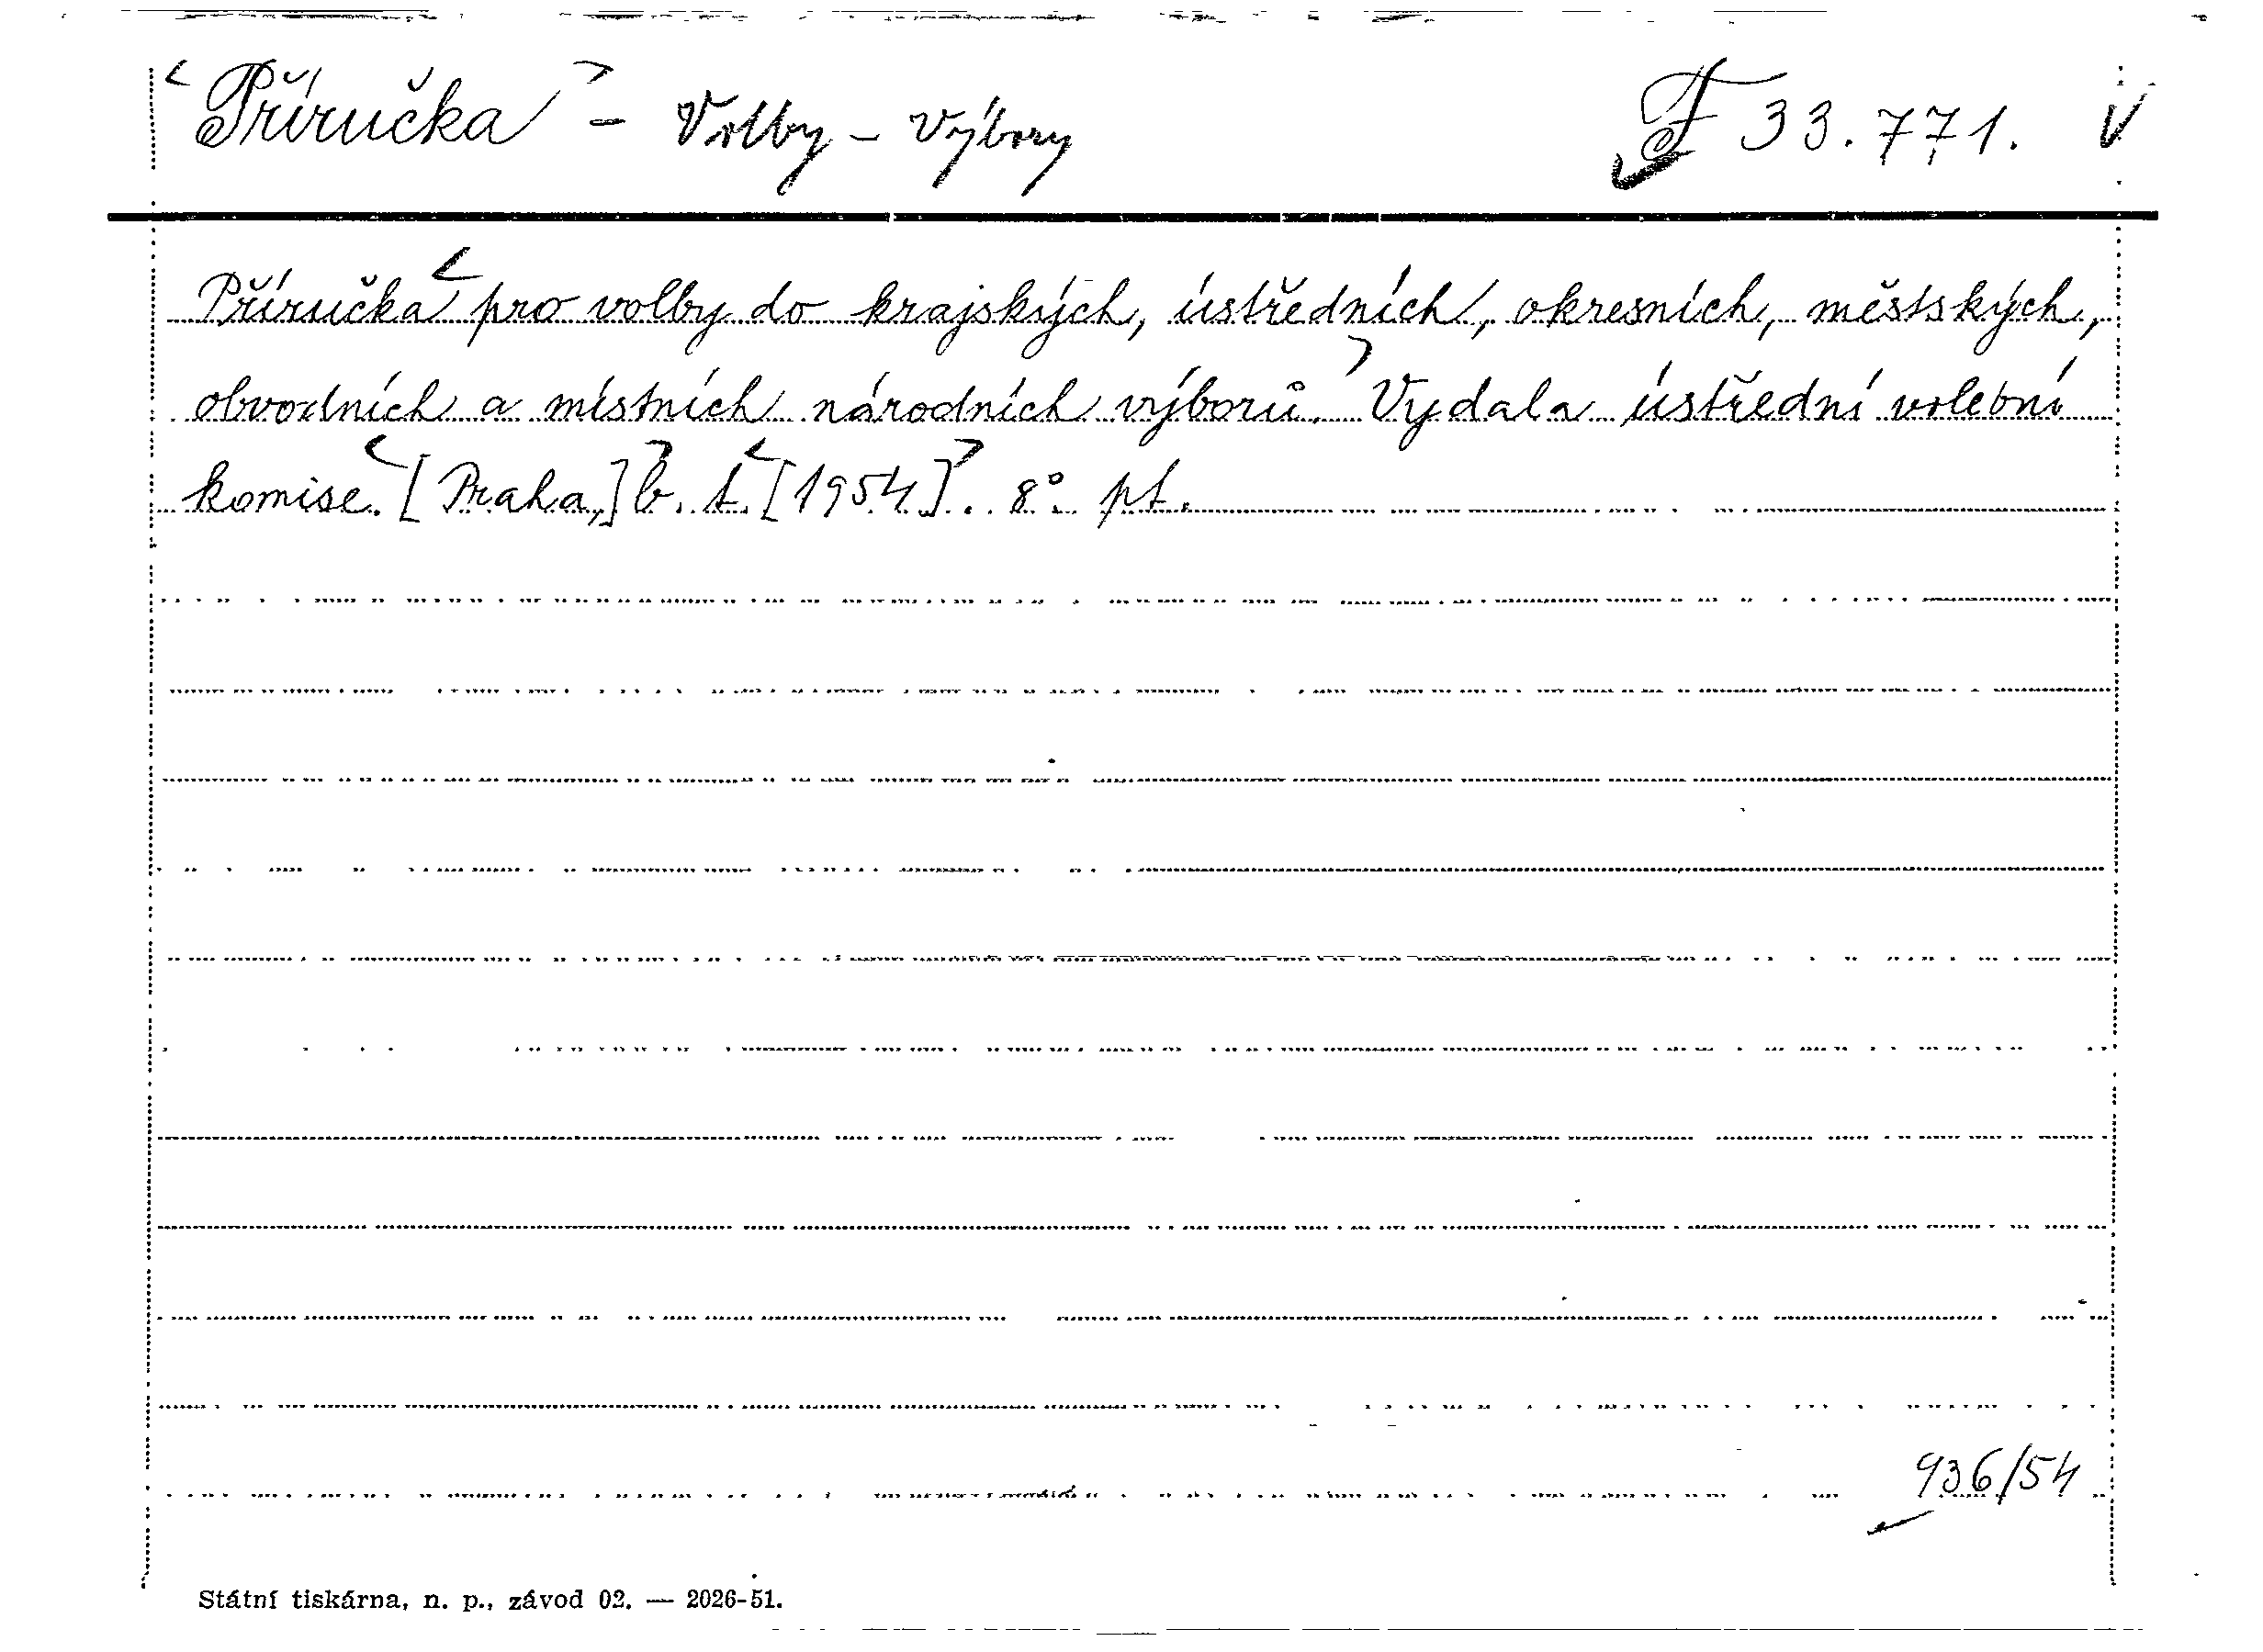 <Příručka> - Volby - Výbory F 33.771. V
Příručka < pro volby do krajských, ústředních, okresních, městských,
obvodních a místních národních výborů. > Vydala ústřední volební
komise. <[Praha,]> b. t. <[1954]>. 8° pt.
936/54
Státní tiskárna, n. p., závod 02. — 2026-51.